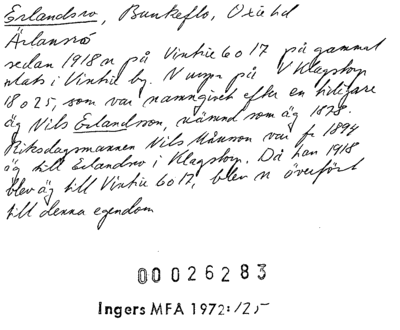 Erlandsro, Bunkeflo, Oxie hd
Ärlansro
sedan 1918 n på Vintrie 6 o 17 på gammal
plats i Vintrie by. N urspr på V Klagstorp
18 o 25, som var namngivet efter en tidigare
äg Nils Erlandsson, nämnd som äg 1878.
Riksdagsmannen Nils Månsson var fr 1894
äg till Erlandsro i Klagstorp. Då han 1918
blev äg till Vintrie 6 o 17, blev n överfört
till denna egendom
00026283
Ingers MFA 1972:125